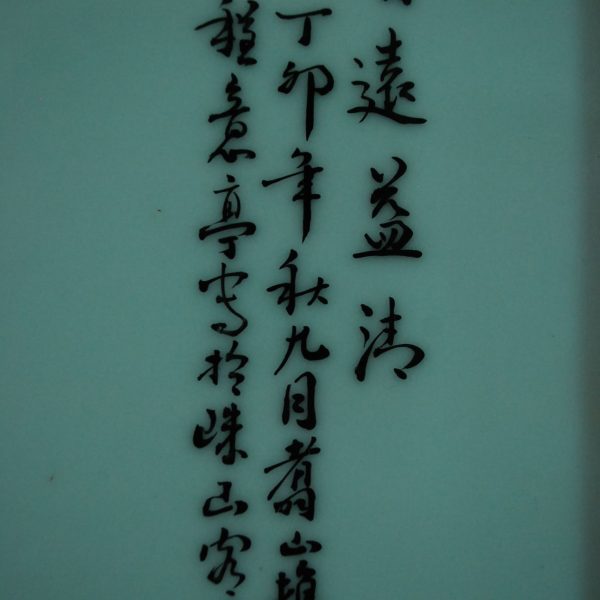 遠益清
丁卯年秋九月翥山
程意亭寫於珠山客